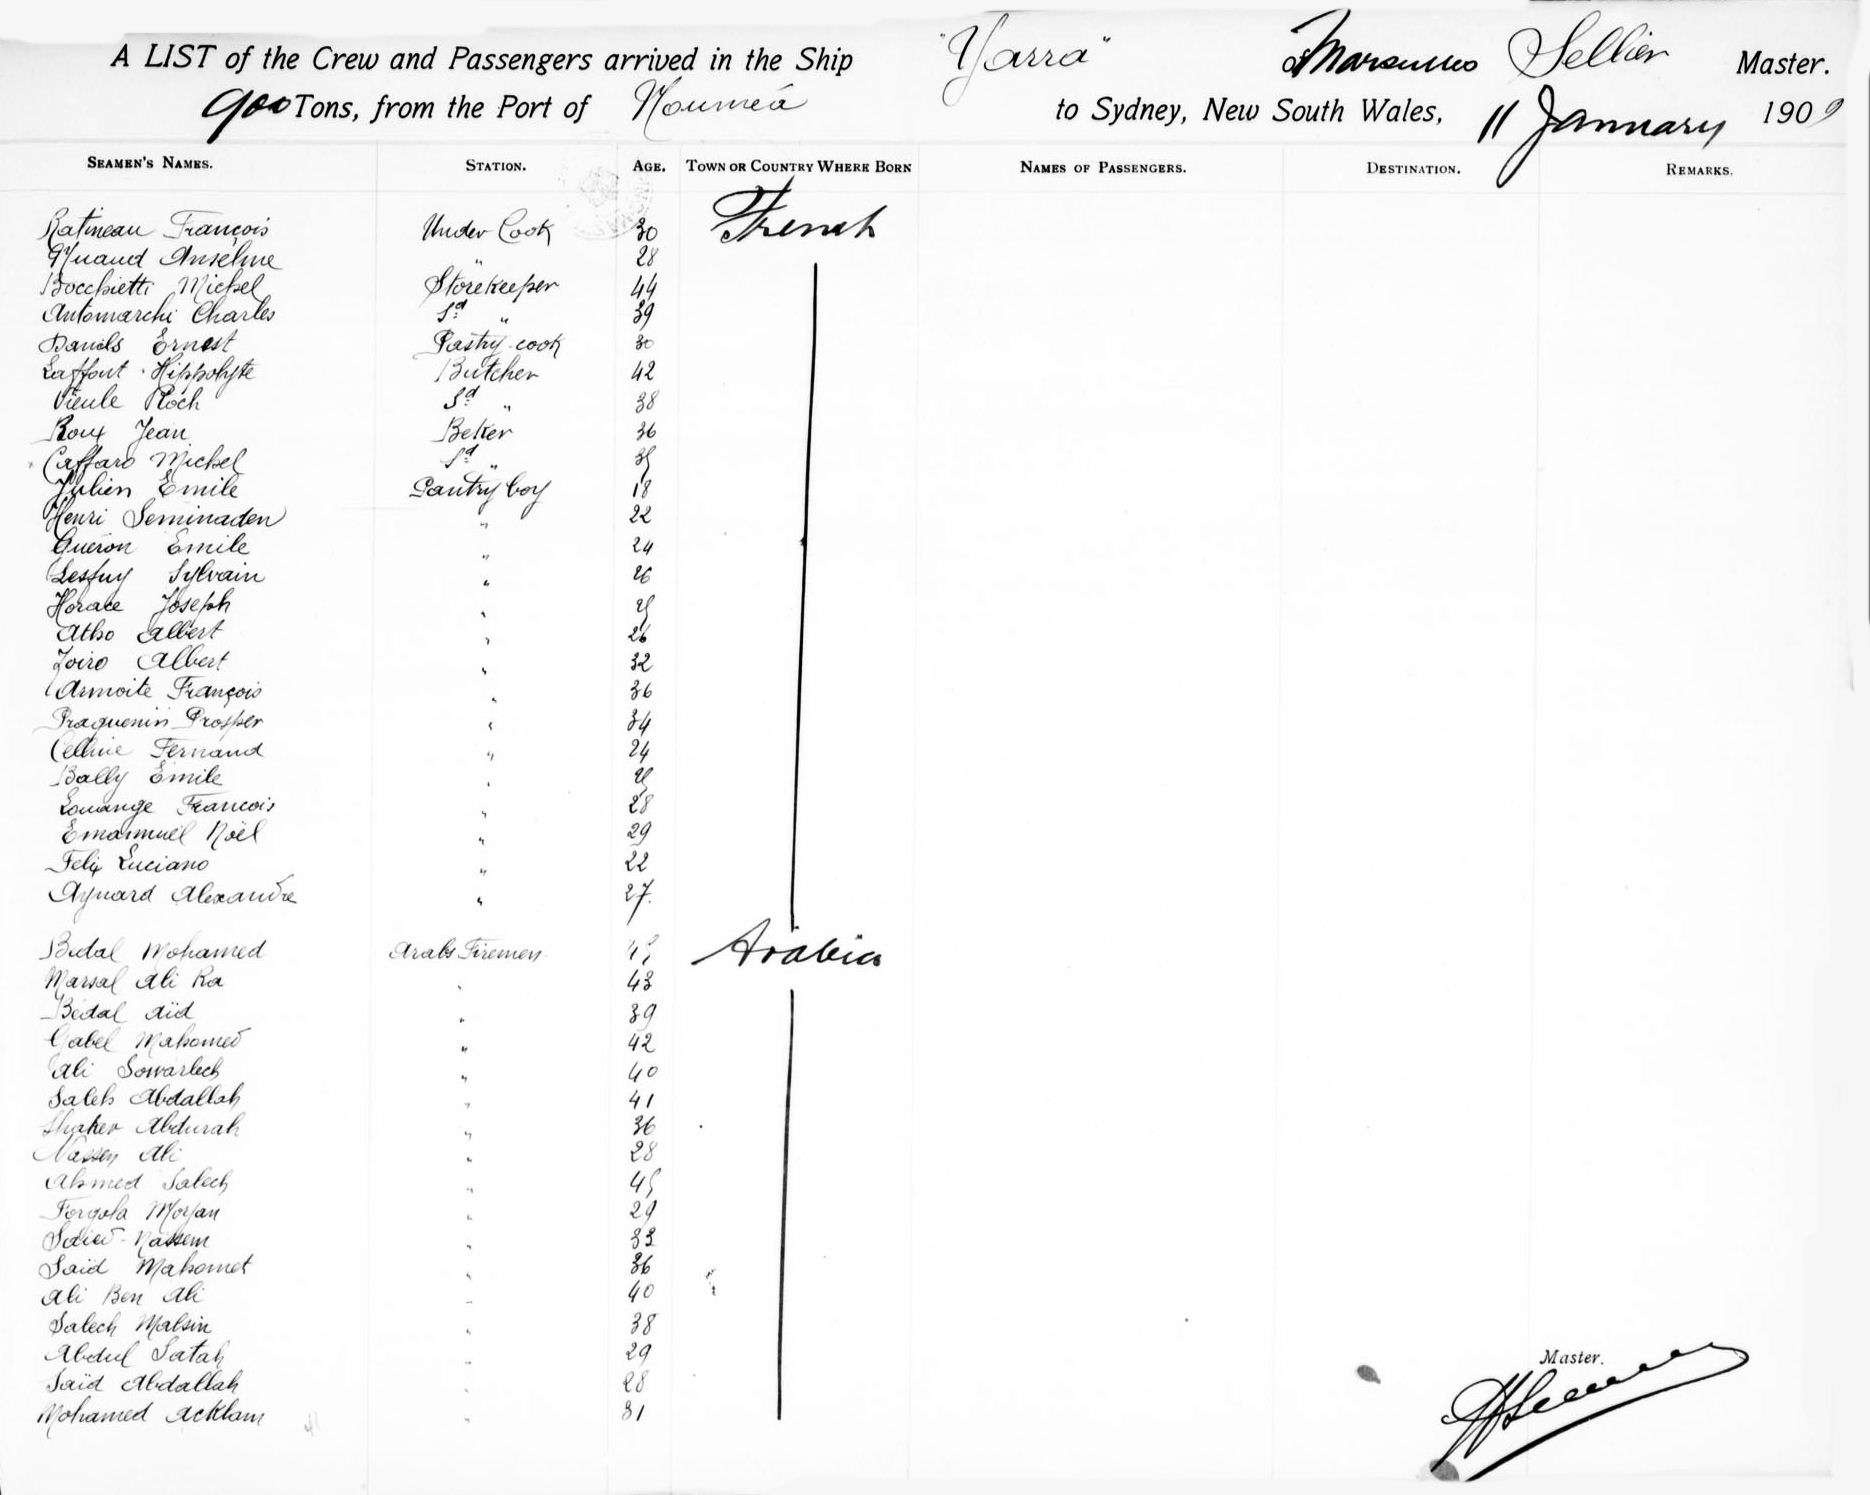 A LIST of the Crew and Passengers arrived in the Ship "Yarra" of Sellier Master.
900 Tons, from the Port of Nouméa to Sydney, New South Wales, 11 January 1909
SEAMEN'S NAMES. STATION. AGE. TOWN OR COUNTRY WHERE BORN NAMES OF PASSENGERS. DESTINATION. REMARKS.
Ratineau François Under Cook 30 French
Anselme " 28
Bocchietti Michel Storekeeper 44
Antomarchi Charles Sd " 39
Daniels Ernest Pastry-cook 30
Laffont Hippolyte Butcher 42
Vieule Roch Sd " 38
Roux Jean Beker 36
Caffaro Michel Sd " 35
Julien Emile Pantry boy 18
Henri Seminaden " 22
Gueron Emile " 24
Lesfuy Sylvain " 26
Horace Joseph " 25
Atho Albert " 26
Zoiro Albert " 32
Armoite François " 36
Praguenin Prosper " 34
Celline Fernand " 24
Bally Emile " 25
Louange Francois " 28
Emanmuel Noël " 29
Felix Luciano " 22
Aynard Alexandre " 27.
Bedal Mohamed Arabs Firemen 45 Arabia
Marsal Ali Ka " 43
Bedal Aïd " 39
Gabel Mahomed " 42
Ali Sowarlech " 40
Saleh Abdallah " 41
Shaker Abdurah " 36
Nassen Ali " 28
Ahmed Salech " 45
Forgola Morjan " 29
Saied Nassem " 33
Saïd Mahomet " 36
Ali Ben Ali " 40
Salech Malsin " 38
Abdul Satah " 29
Saïd Abdallah " 28
Mohamed Acklam " 31
Master.